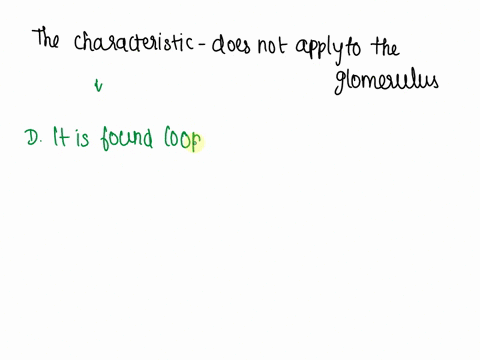 The characteristic - does not apply to the
glomerulus
D. It is found loop